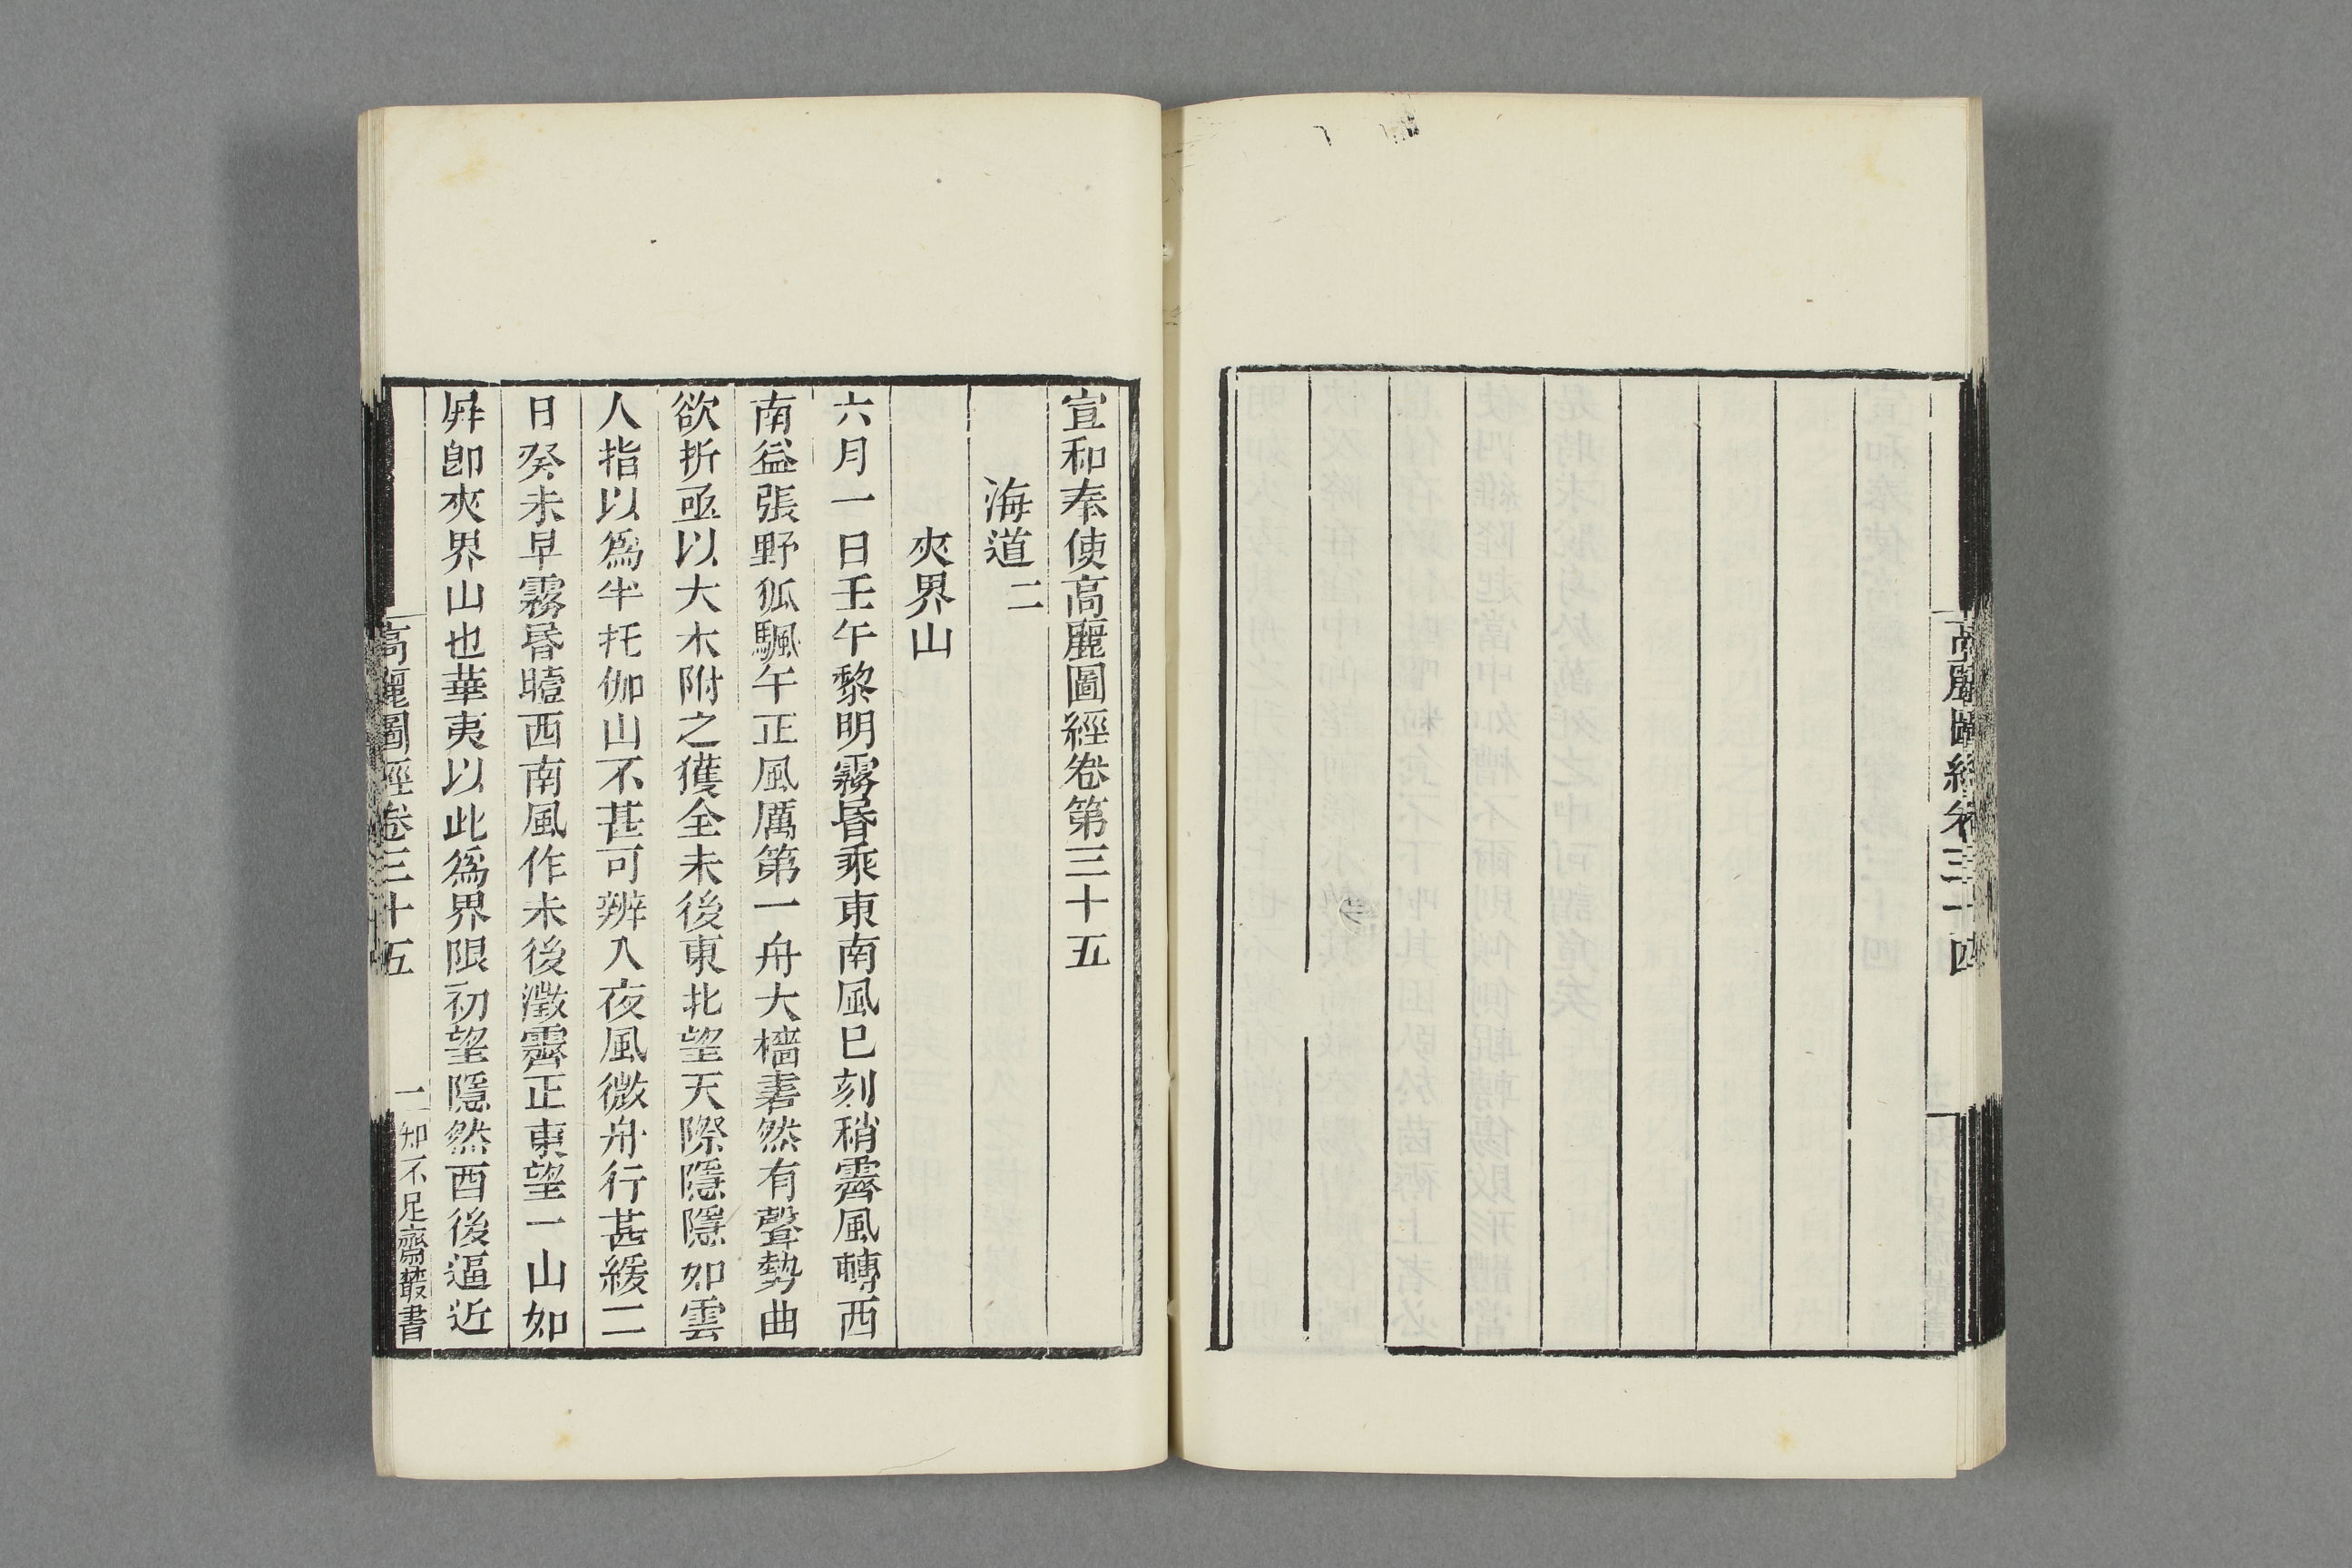 高麗圖經卷三十四
宣和奉使高麗圖經卷第三十五
海道二
夾界山
六月一日壬午黎明霧昬乘東南風巳刻稍霽風轉西
南益張野狐颿午正風厲第一舟大檣砉然有聲勢曲
欲折亟以大木附之獲全未後東北望天際隱隱如雲
人指以爲半托伽山不甚可辨入夜風微舟行甚緩二
日癸未早霧昬曀西南風作未後澂霽正東望一山如
屏卽夾界山也華夷以此爲界限初望隱然酉後逼近
高麗圖經卷三十五
一
知不足齋叢書